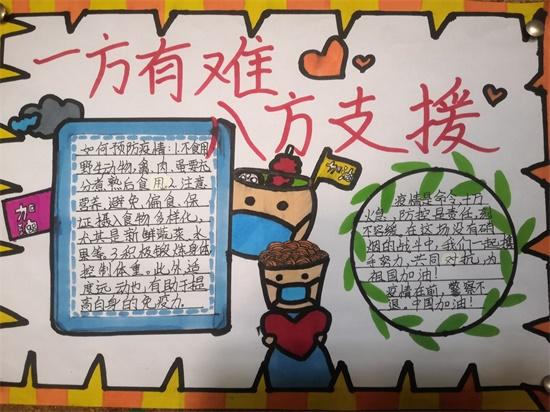 一方有难
八方支援
如何预防疫情:1.不食用
野生动物,禽、肉、蛋要充
分煮熟后食用.2.注意
营养,避免偏食,保
证摄入食物多样化,
尤其是新鲜蔬菜、水
果等。3.积极锻炼身体
控制体重。此外适
度运动也,有助于提
高自身的免疫力.
加油
加油
疫情是命令,十万
火急,防控是责任,刻
不容缓,在这场没有硝
烟的战斗中,我们一起携
手努力,共同对抗,为
祖国加油!
疫情在前,警察不
退,中国加油!